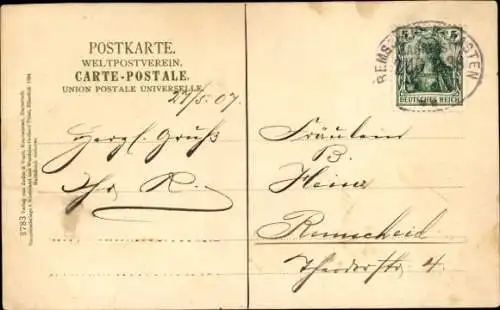 POSTKARTE.
WELTPOSTVEREIN.
CARTE-POSTALE.
UNION POSTALE UNIVERSELLE
27/5.07.
Herzl. Gruß
Ihr R.
3783
5 5
DEUTSCHES REICH
REMS
STEN
Fräulein
B.
Heinz
Remscheid
Theodorstr. 4.